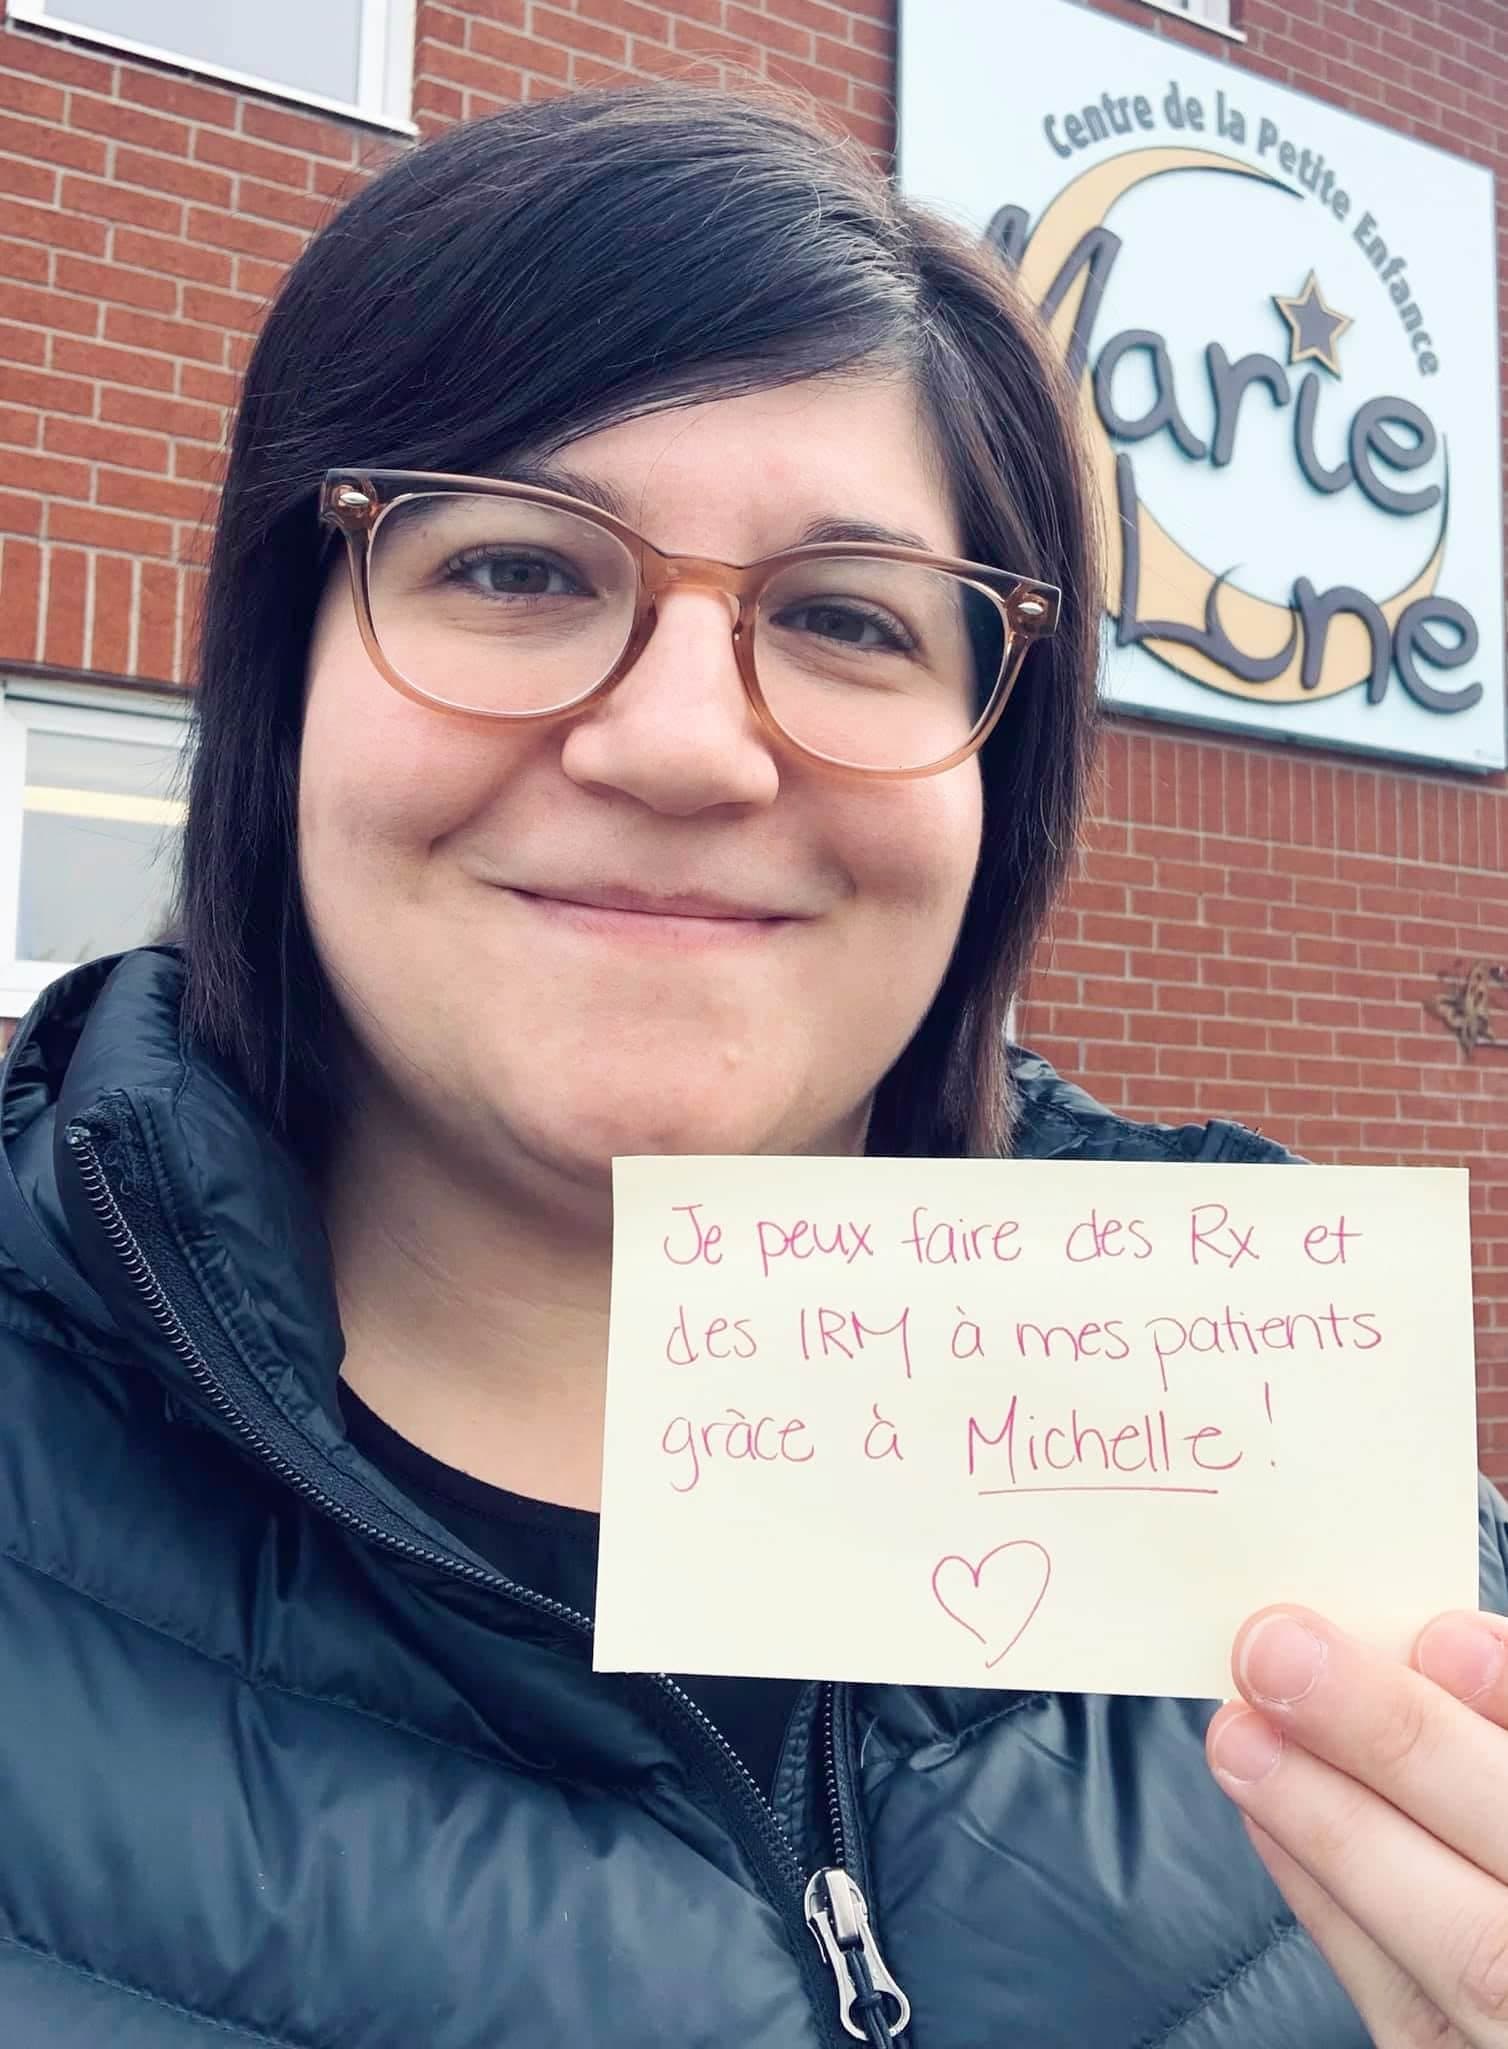 Centre de la Petite Enfance
Marie
Lune
Je peux faire des Rx et
des IRM à mes patients
gràce à Michelle!